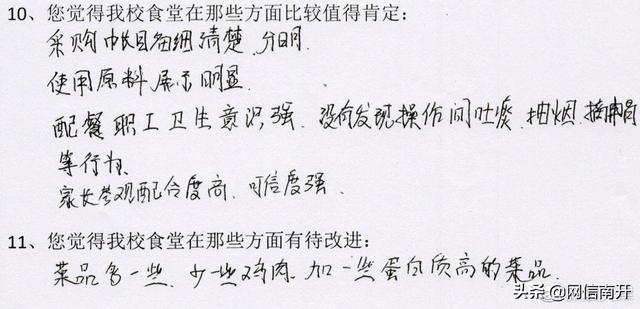 10、您觉得我校食堂在那些方面比较值得肯定：
采购帐目笛细清楚、分明.
使用原料展示明显
配餐职工卫生意识强、没有发现操作间吐痰、抽烟、
等行为.
家长参观配合度高、可信度强、
11、您觉得我校食堂在那些方面有待改进：
菜品多一些、少一些鸡肉、加一些蛋白质高的菜品.
头条@网信南开